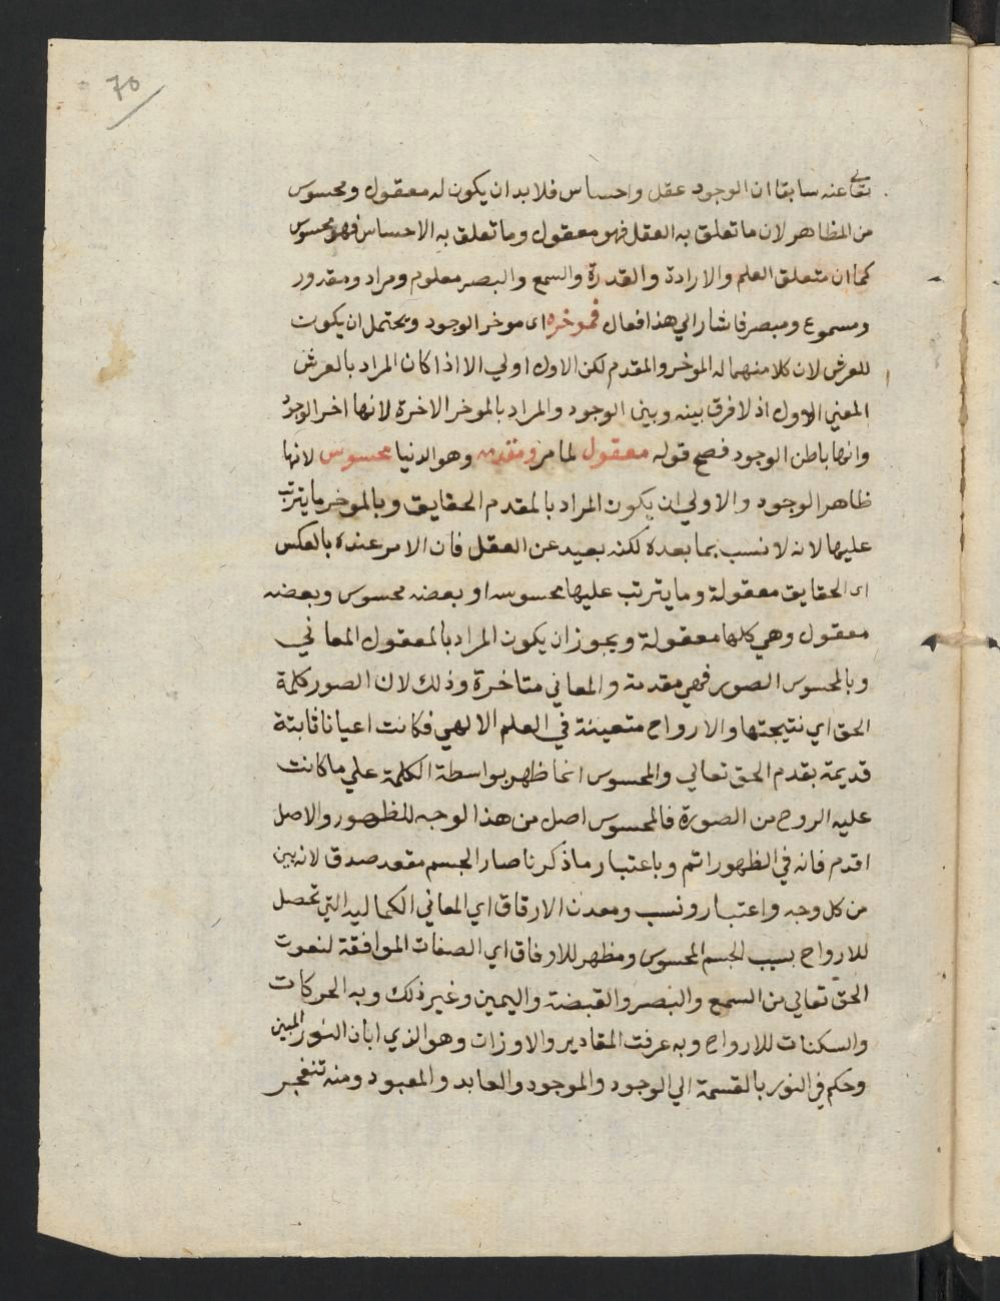 70
تعالى عنه سابقا ان الوجود عقل واحساس فلا بد ان يكون له معقول ومحسوس
من المظاهر لان ما تعلق به العقل فهو معقول وما تعلق به الاحساس فهو محسوس
كما ان متعلق العلم والارادة والقدرة والسمع والبصر معلوم ومراد ومقدور
ومسموع ومبصر فاشار الي هذا فقال فموخره اى موخر الوجود ويحتمل ان يكون
للعرش لان كلا منهما له الموخر والمقدم لكن الاول اولي الا اذا كان المراد بالعرش
المعني الاول اذ لا فرق بينه وبين الوجود والمراد بالموخر الاخرة لانها اخر الوجود
وانها باطن الوجود فصح قوله معقول لما مر ومقدمه وهو الدنيا محسوس لانها
ظاهر الوجود والاولي ان يكون المراد بالمقدم الحقايق وبالموخر ما يترتب
عليها لانه لا نسب بما بعده لكنه بعيد عن العقل فان الامر عنده بالعكس
اى الحقايق معقولة وما يترتب عليها محسوسه او بعضه محسوس وبعضه
معقول وهي كلها معقولة ويجوز ان يكون المراد بالمعقول المعاني
وبالمحسوس الصور فهي مقدمة والمعاني متاخرة وذلك لان الصور كلمة
الحق اي نتيجتها والارواح متعينة في العلم الالهي فكانت اعيانا ثابتة
قديمة بقدم الحق تعالي والمحسوس انما ظهر بواسطة الكلمة علي ما كانت
عليه الروح من الصورة فالمحسوس اصل من هذا الوجه للظهور والاصل
اقدم فانه في الظهور اتم وباعتبار ما ذكرنا صار الجسم مقعد صدق لانه بين
من كل وجه واعتبار ونسب ومعدن الارقاق اي المعاني الكماليه التي تحصل
للارواح بسبب الجسم المحسوس ومظهر للارفاق اي الصفات الموافقة لنعوت
الحق تعالي من السمع والبصر والقبضة واليمين وغير ذلك وبه الحركات
والسكنات للارواح وبه عرفت المقادير والاوزان وهو الذي ابان النور المبين
وحكم في النور بالقسمة الي الوجود والموجود والعابد والمعبود ومنه تنفجر